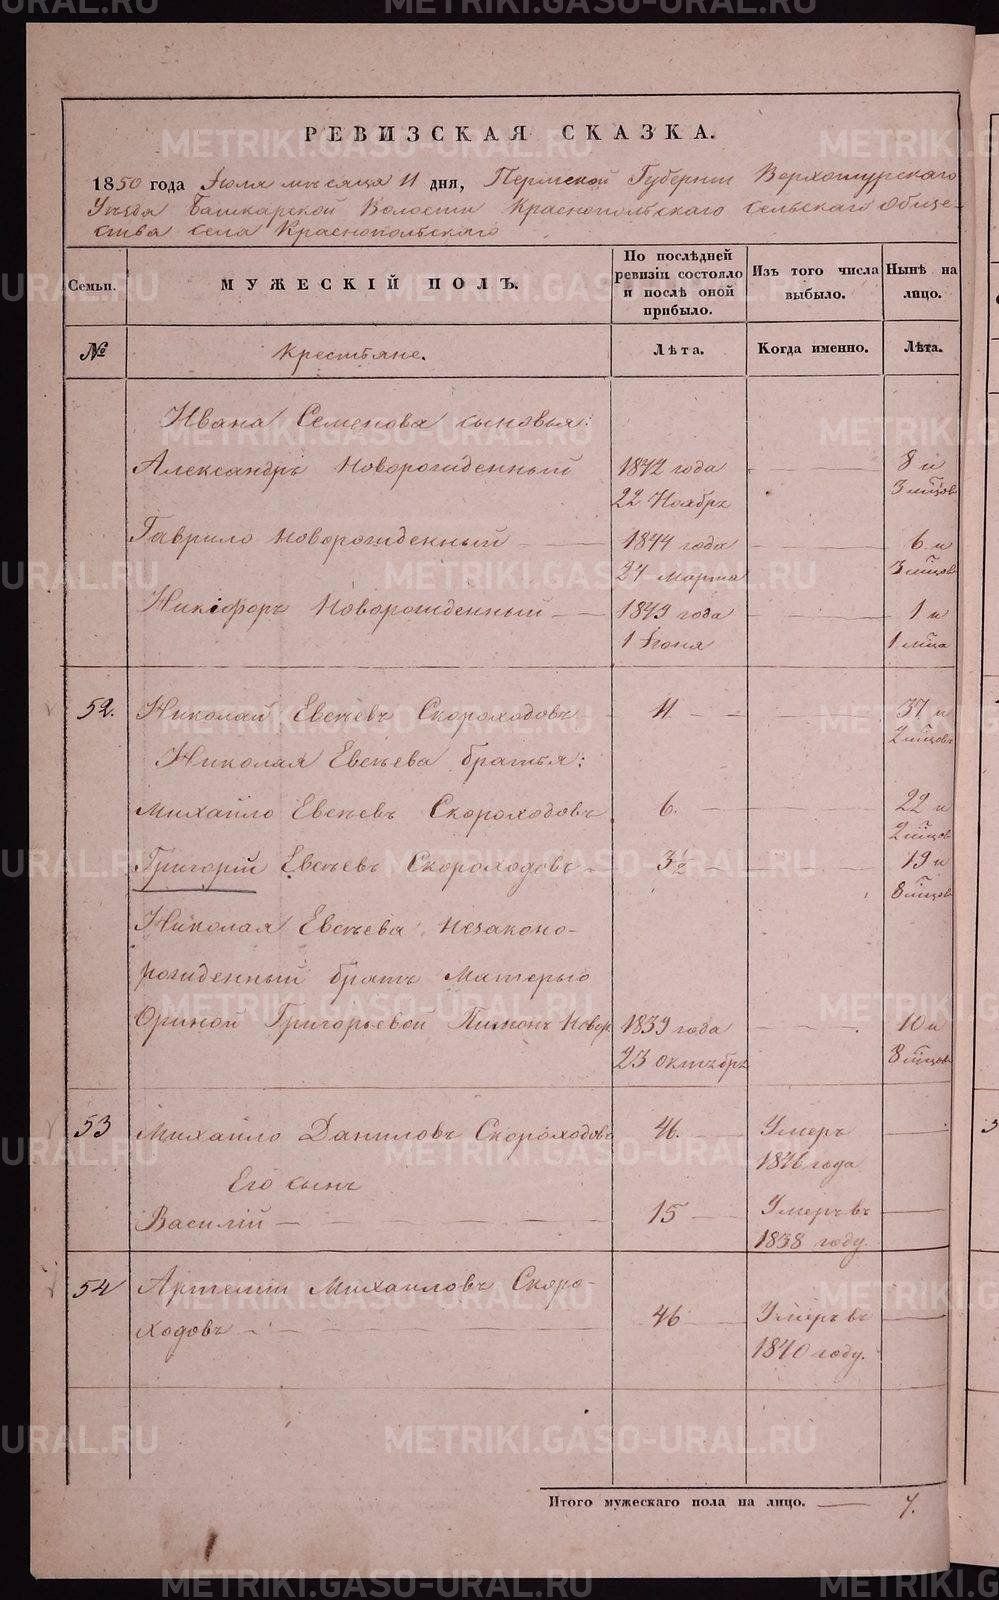 РЕВИЗСКАЯ СКАЗКА.
1850 года Іюля мѣсяца 11 дня, Пермской Губерніи Верхотурскаго
Уѣзда Башкарской Волости Краснопольскаго сельскаго обще-
ства села Краснопольскаго
Семьи. МУЖЕСКІЙ ПОЛЪ. По послѣдней ревизіи состояло и послѣ оной прибыло. Изъ того числа выбыло. Нынѣ на лицо.
№ Крестьяне. Лѣта. Когда именно. Лѣта.
Ивана Семенова сыновья:
Александръ новорожденный 1842 года 8 и
22 Ноябрь 3 мѣсцовъ
Гаврило новорожденный 1844 года 6 и
24 марта 3 мѣсцовъ
Никифоръ Новорожденный 1849 года 1 и
1 Іюня 1 мѣца
52. Николай Евсѣевъ Скороходовъ 11 37 и
2 мѣсцовъ
Николая Евсѣева братья:
Михайло Евсѣевъ Скороходовъ 6. 22 и
2 мѣсцовъ
Григорій Евсѣевъ Скороходовъ 3½ 19 и
8 мѣсцовъ
Николая Евсѣева незаконо-
рожденный братъ матерью
Ориной Григорьевой Пимонъ Новор. 1839 года 10 и
23 октябрь 8 мѣсцовъ
53 Михайло Даниловъ Скороходовъ 46. Умеръ
1846 года
Его сынъ
Василій 15 Умеръ въ
1838 году.
54 Артемій Михаиловъ Скоро-
ходовъ 46 Умеръ въ
1840 году.
Итого мужескаго пола на лицо. 7.
METRIKI.GASO-URAL.RU